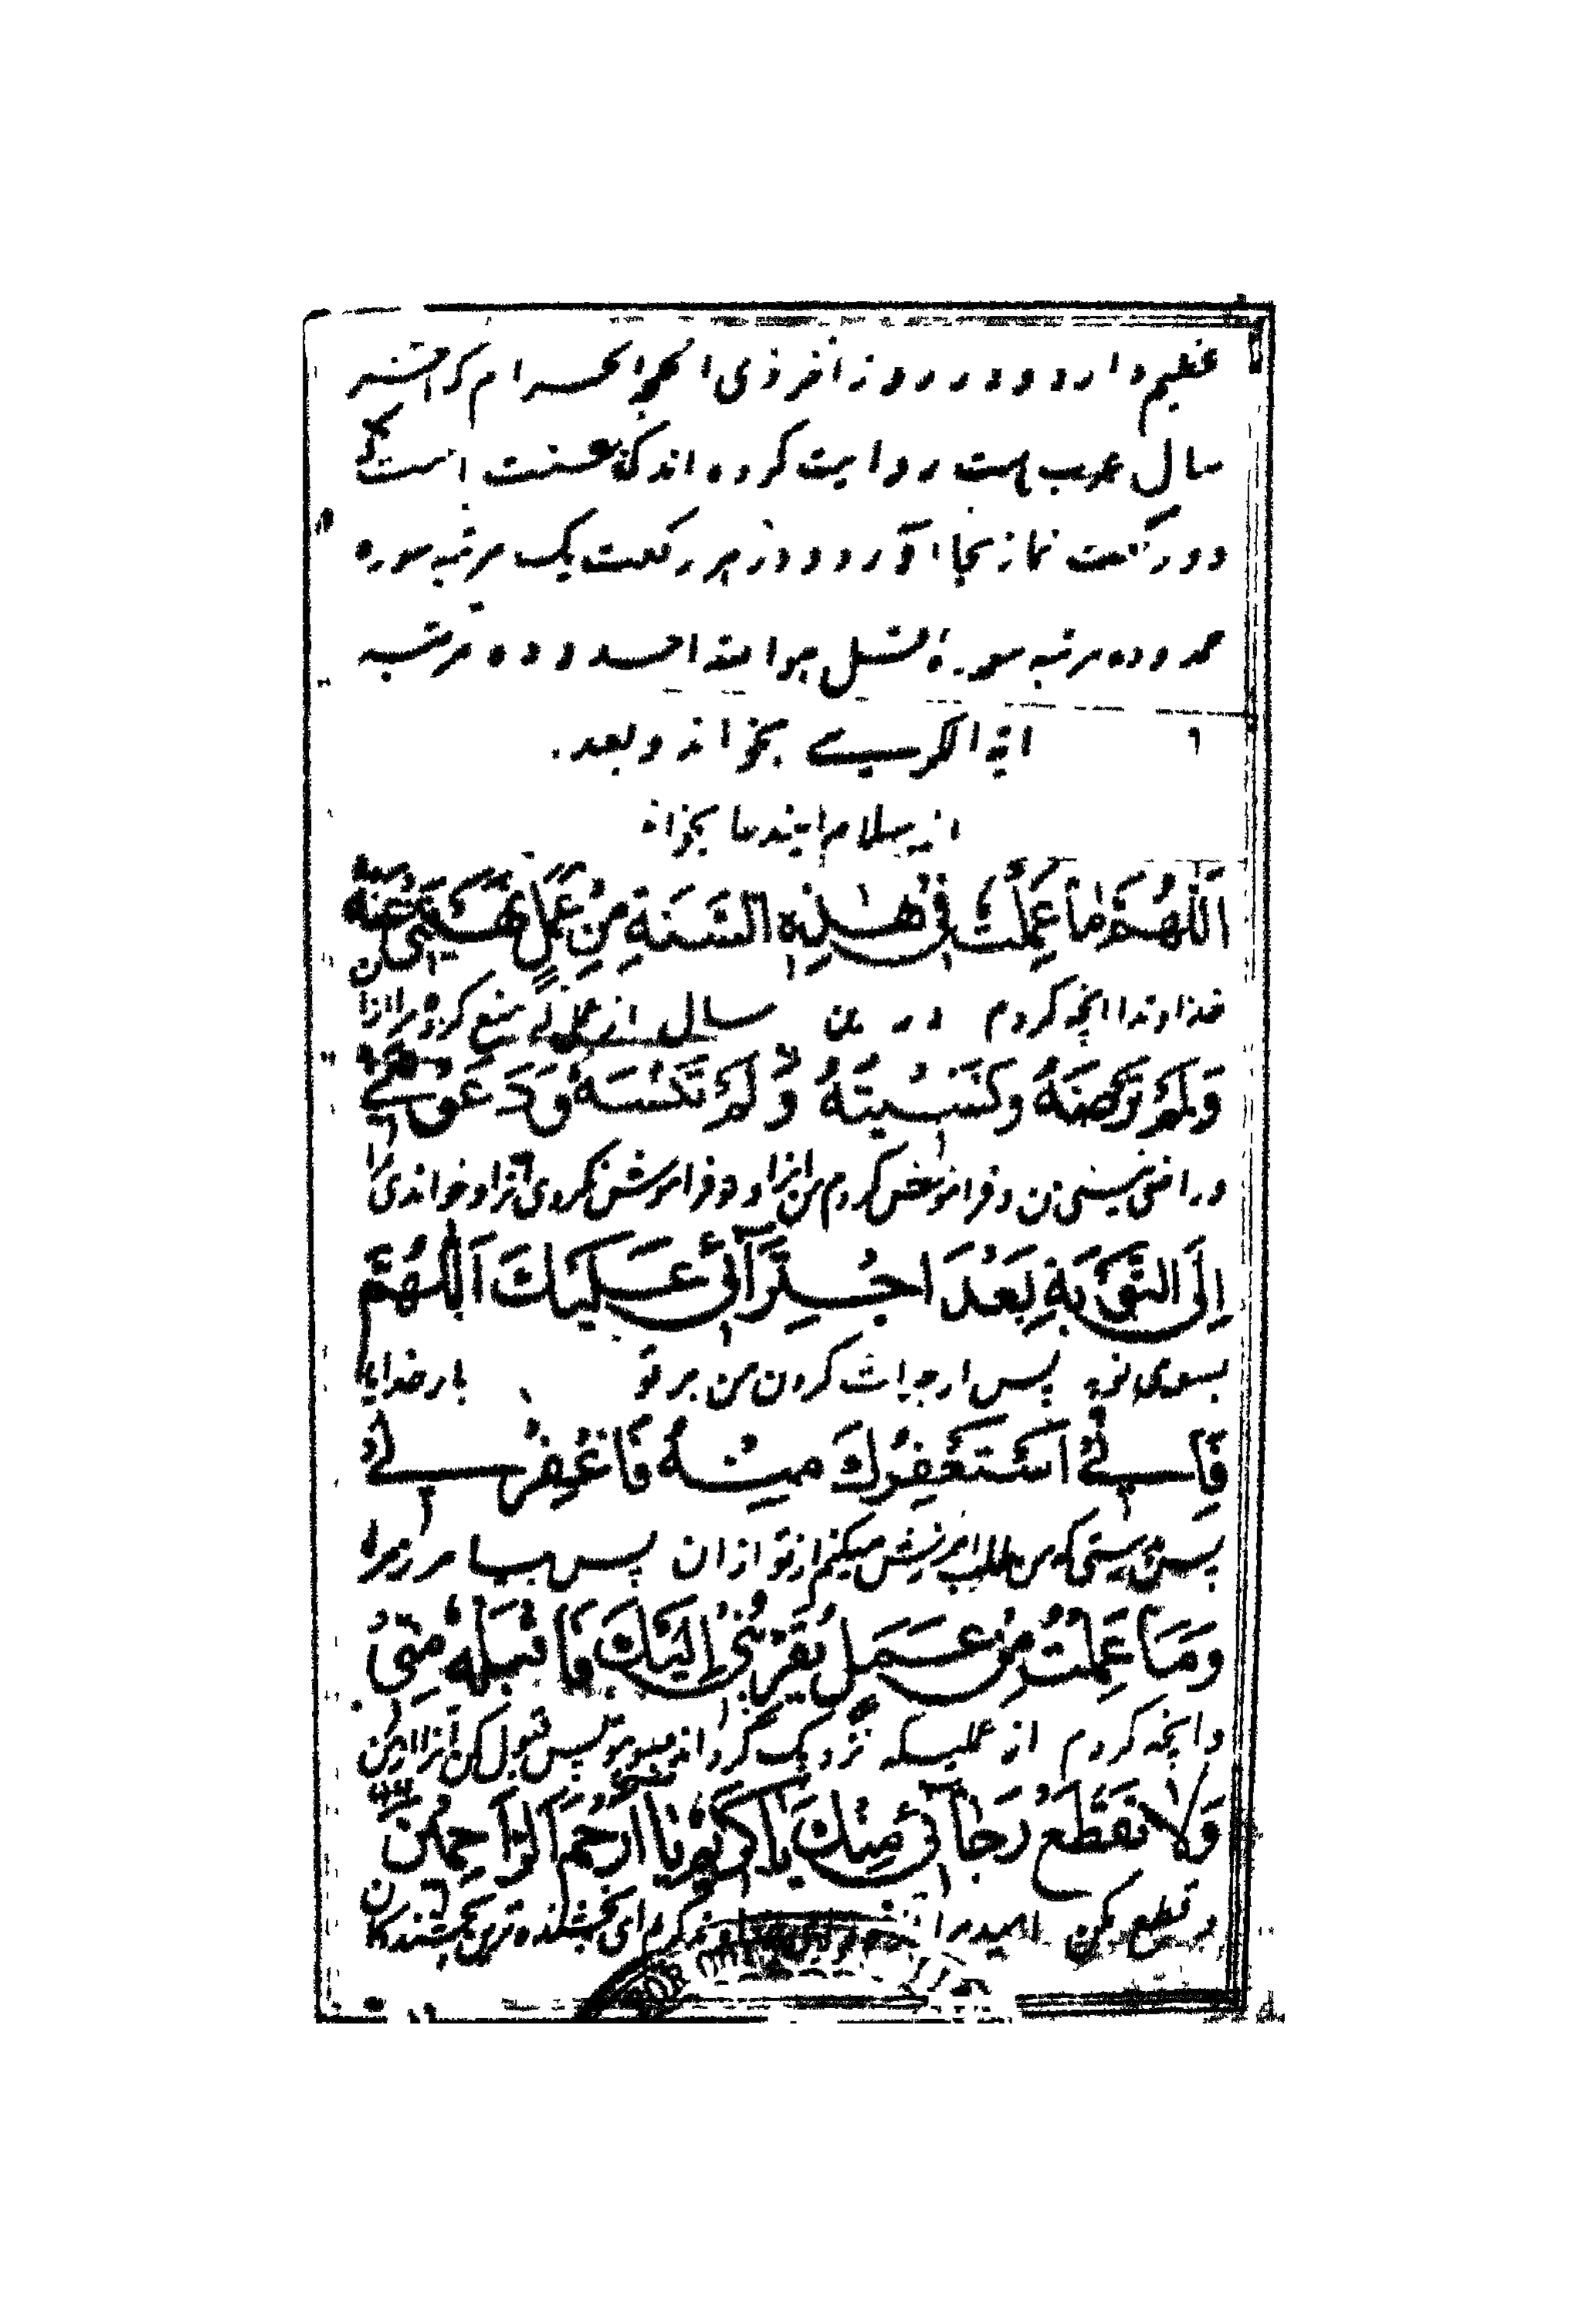 عظیم دارد و در روز آخر ذی الحجة الحرام که آخر
سال عرب هست روایت کرده اند که سنت است که
دو رکعت نماز بجا آورد و در هر رکعت یک مرتبه سوره
حمد و ده مرتبه سورهٔ قل هو الله احد و ده مرتبه
ایة الکرسے بخواند و بعد
از سلام ایندعا بخواند
اَللّٰهُمَّ مَا عَمِلْتُ فِی هٰذِهِ السَّنَةِ مِنْ عَمَلٍ نَهَیْتَنِی عَنْهُ
خداوندا انچه کردم در این سال از عملی که منع کردی مرا ازان
وَلَمْ تَرْضَهُ وَنَسِیتُهُ وَلَمْ تَنْسَهُ وَدَعَوْتَنِے
و راضی نیستی زان و فراموش کردم من انرا و تو فراموش نکردی انرا و خواندی مرا
اِلَی التَّوْبَةِ بَعْدَ اجْتِرَآئِی عَلَیْكَ اَللّٰهُمَّ
بسوی توبه پس از جرات کردن من بر تو بار خدایا
فَاِنِّے اَسْتَغْفِرُكَ مِنْهُ فَاغْفِرْ لِے
پس بدرستی که من طلب امرزش میکنم از تو ازان پس بیامرز مرا
وَمَا عَمِلْتُ مِنْ عَمَلٍ یُقَرِّبُنِی اِلَیْكَ فَاقْبَلْهُ مِنِّی
و انچه کردم از عملیکه نزدیک گرداند مرا بسوی تو پس قبول کن انرا از من
وَلَا تَقْطَعْ رَجَآئِی مِنْكَ یَا كَرِیْمُ یَا اَرْحَمَ الرَّاحِمِیْنَ
و قطع مکن امید مرا از خود ای خداوند کرم ای بخشنده ترین بخشندگان